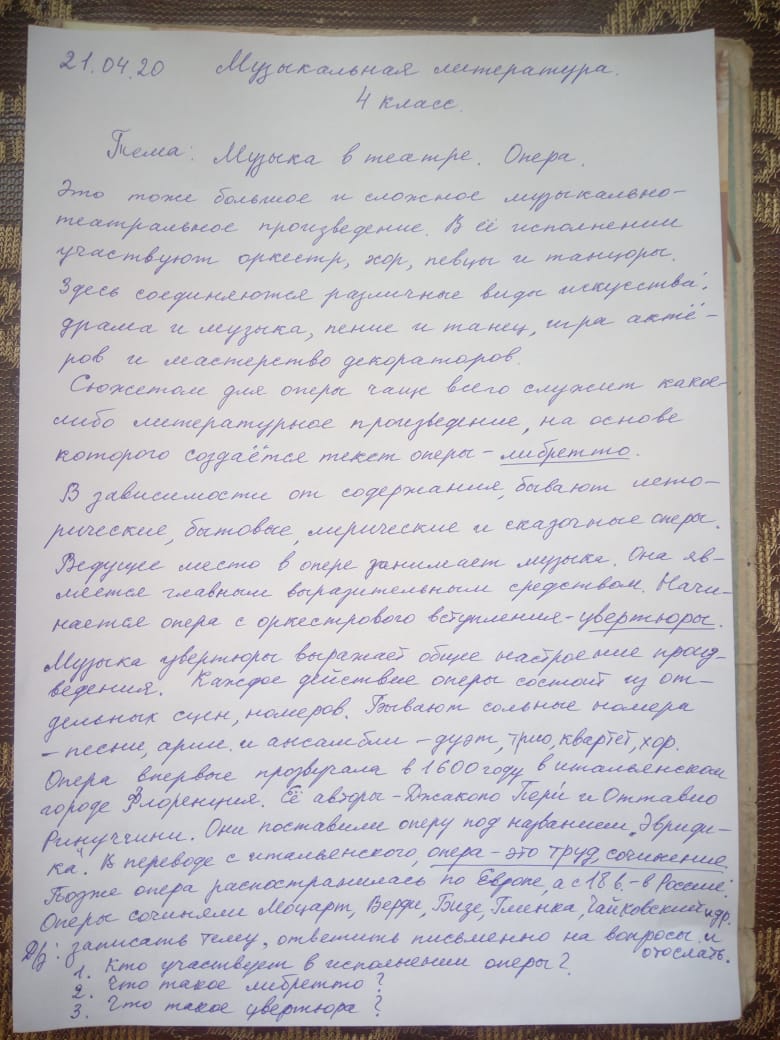 21.04.20 Музыкальная литература.
4 класс.
Тема: Музыка в театре. Опера.
Это тоже большое и сложное музыкально-
театральное произведение. В её исполнении
участвуют оркестр, хор, певцы и танцоры.
Здесь соединяются различные виды искусства:
драма и музыка, пение и танец, игра актё-
ров и мастерство декораторов.
Сюжетом для оперы чаще всего служит какое-
либо литературное произведение, на основе
которого создаётся текст оперы - либретто.
В зависимости от содержания, бывают исто-
рические, бытовые, лирические и сказочные оперы.
Ведущее место в опере занимает музыка. Она яв-
ляется главным выразительным средством. Начи-
нается опера с оркестрового вступления - увертюры.
Музыка увертюры выражает общее настроение произ-
ведения. Каждое действие оперы состоит из от-
дельных сцен, номеров. Бывают сольные номера
- песни, арии и ансамбли - дуэт, трио, квартет, хор.
Опера впервые прозвучала в 1600 году в итальянском
городе Флоренция. Её авторы - Джакопо Пери и Оттавио
Ринуччини. Они поставили оперу под названием „Эвриди-
ка". В переводе с итальянского, опера - это труд, сочинение.
Позже опера распостранилась по Европе, а с 18 в. - в России.
Оперы сочиняли Моцарт, Верди, Бизе, Глинка, Чайковский и др.
Д/з: записать тему, ответить письменно на вопросы и
отослать.
1. Кто участвует в исполнении оперы?
2. Что такое либретто?
3. Что такое увертюра?